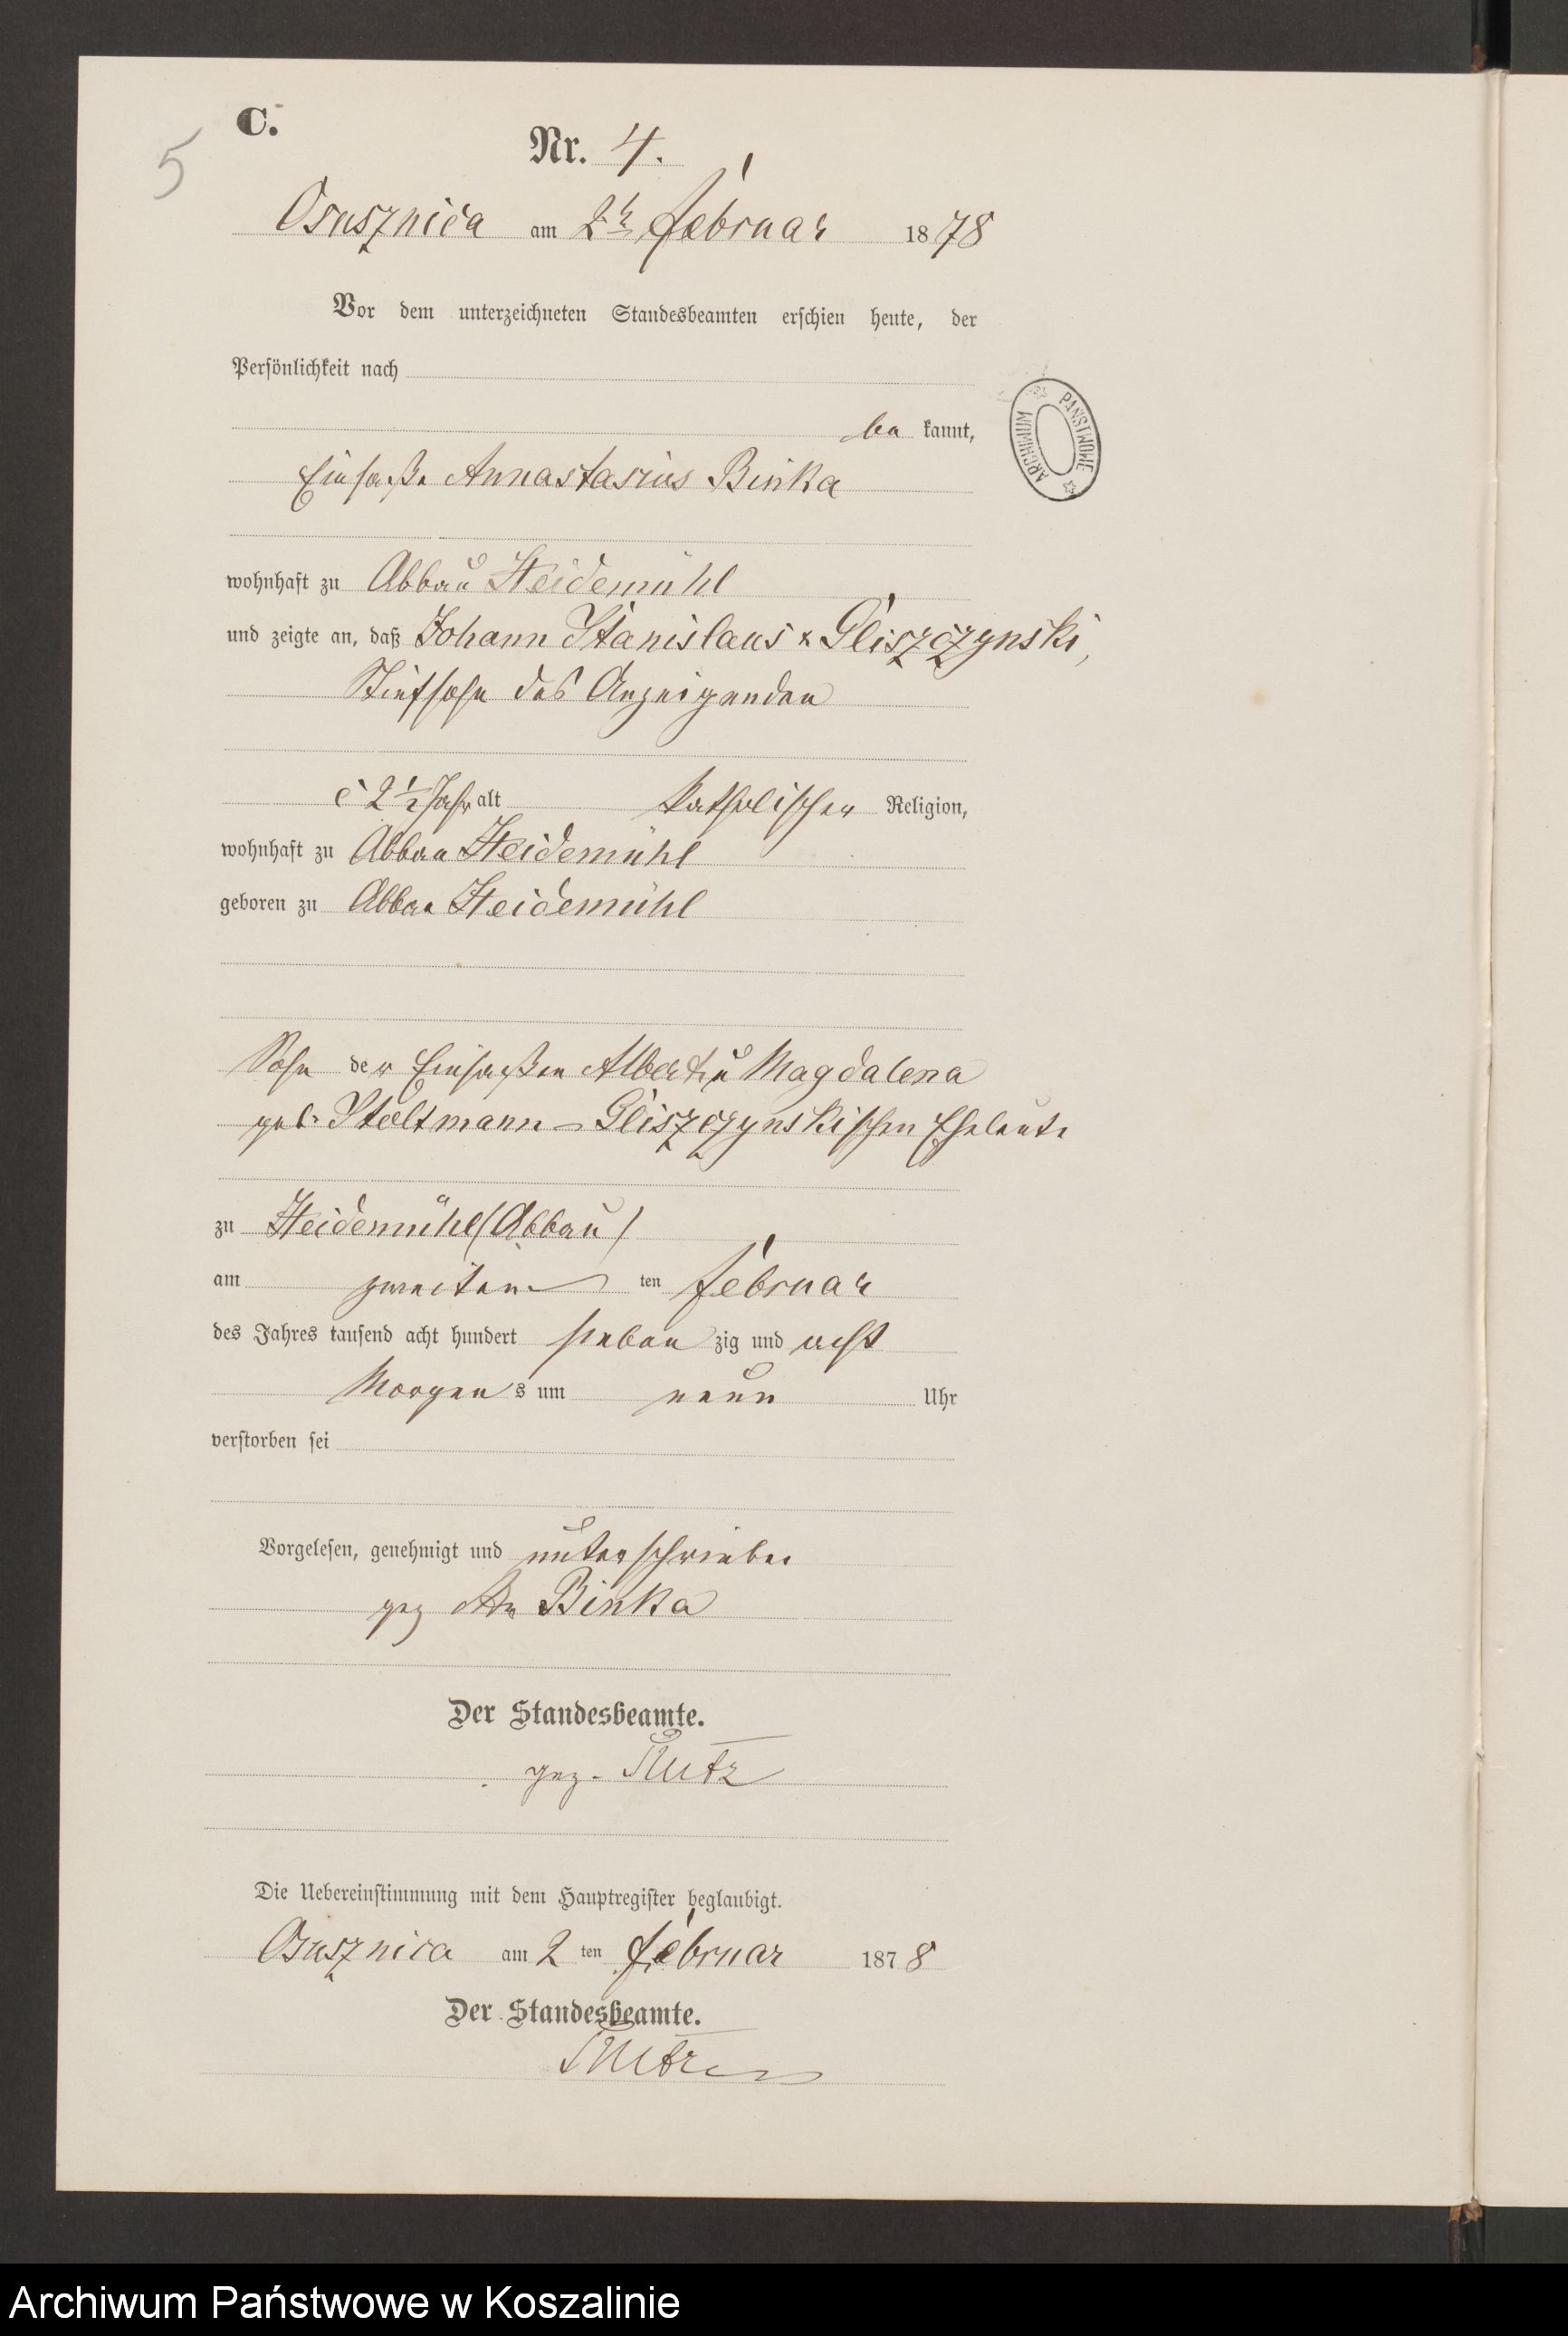 C.
5
Nr. 4.
Osusznica am 2t Februar 1878
Vor dem unterzeichneten Standesbeamten erschien heute, der
Persönlichkeit nach
be kannt,
Einsaße Annastasius Binka
wohnhaft zu Abbau Heidemühl
und zeigte an, daß Johann Stanislaus x Gliszczynski,
Stiefsohn des Anzeigenden
2 1/2 Jahr alt katholischer Religion,
wohnhaft zu Abbau Heidemühl
geboren zu Abbau Heidemühl
Sohn der Einsaßen Albert u Magdalena
geb. Stoltmann - Gliszczynskischen Eheleute
zu Heidemühl (Abbau)
am zweiten ten Februar
des Jahres tausend acht hundert sieben zig und acht
Morgen s um neun Uhr
verstorben sei
Vorgelesen, genehmigt und unterschrieben
gez An Binka
Der Standesbeamte.
gez. Rutz
Die Uebereinstimmung mit dem Hauptregister beglaubigt.
Osusznica am 2 ten Februar 1878
Der Standesbeamte.
Rutz
ARCHIWUM PAŃSTWOWE
Archiwum Państwowe w Koszalinie